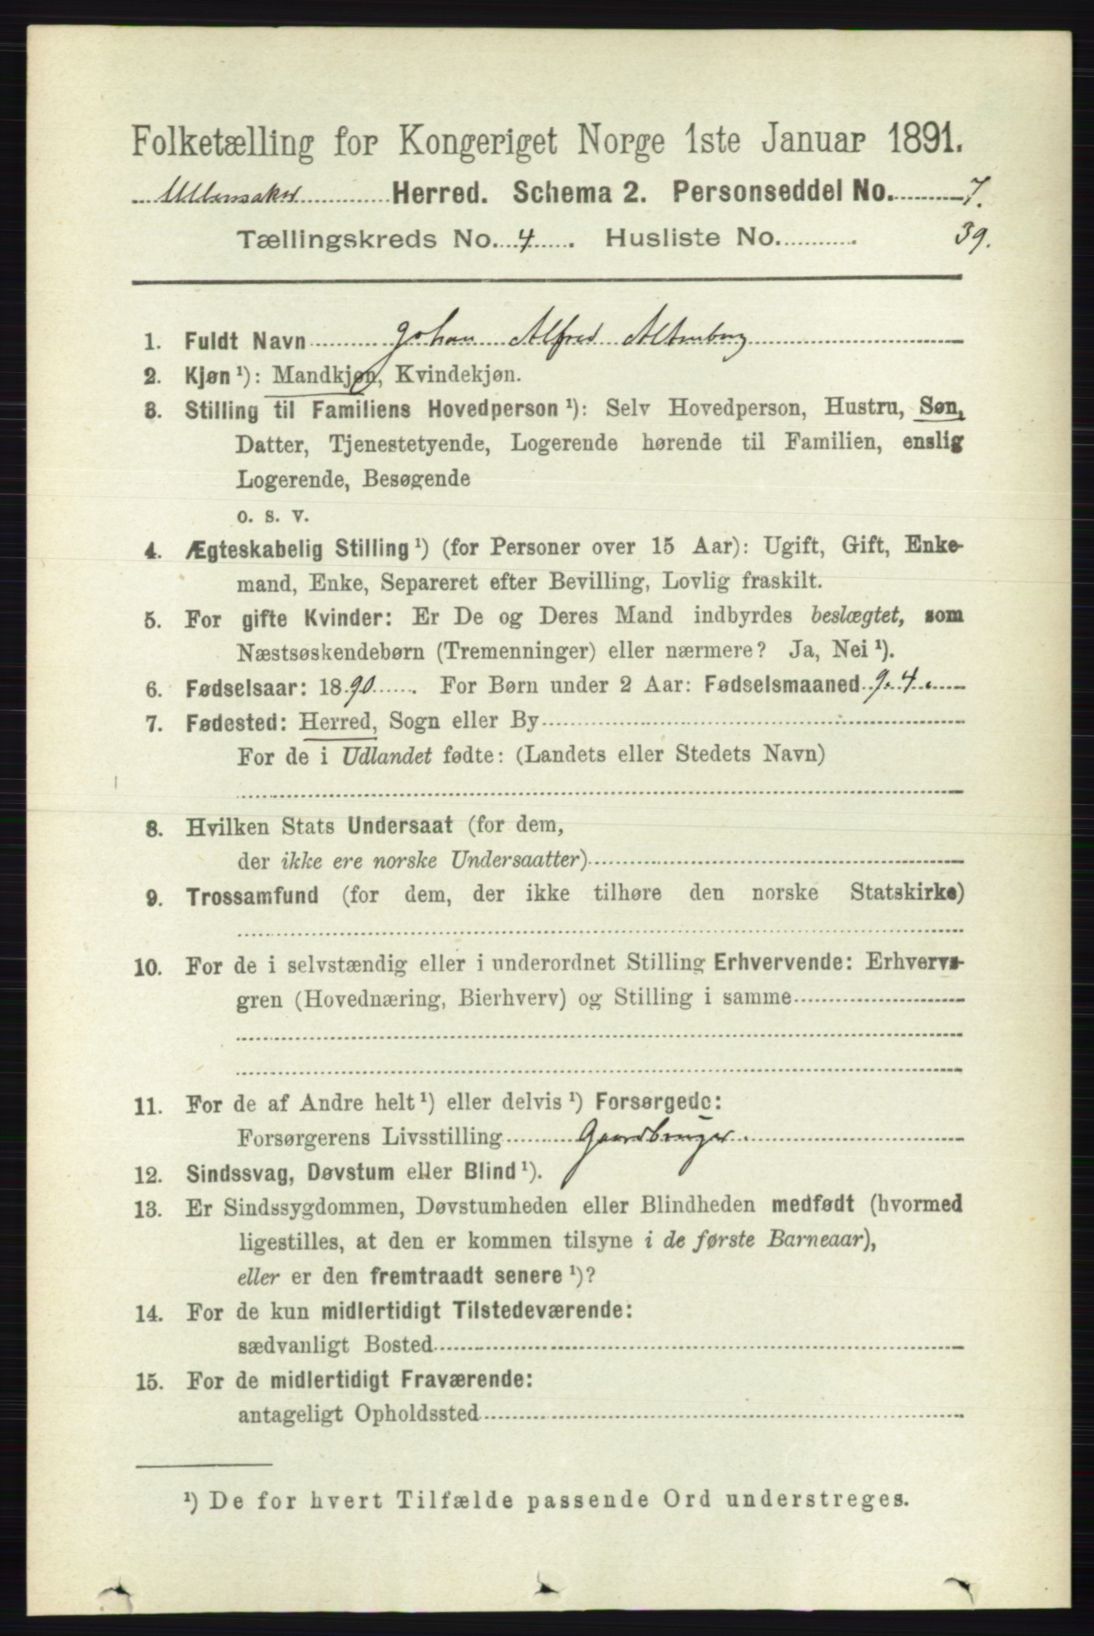 Folketælling for Kongeriget Norge 1ste Januar 1891.
Ullensaker Herred. Schema 2. Personseddel No. 7.
Tællingskreds No. 4. Husliste No. 39.
1. Fuldt Navn Johan Alfred Altenborg
2. Kjøn ¹): Mandkjøn, Kvindekjøn.
3. Stilling til Familiens Hovedperson ¹): Selv Hovedperson, Hustru, Søn,
Datter, Tjenestetyende, Logerende hørende til Familien, enslig
Logerende, Besøgende
o. s. v.
4. Ægteskabelig Stilling ¹) (for Personer over 15 Aar): Ugift, Gift, Enke-
mand, Enke, Separeret efter Bevilling, Lovlig fraskilt.
5. For gifte Kvinder: Er De og Deres Mand indbyrdes beslægtet, som
Næstsøskendebørn (Tremenninger) eller nærmere? Ja, Nei ¹).
6. Fødselsaar: 1890. For Børn under 2 Aar: Fødselsmaaned 9.4.
7. Fødested: Herred, Sogn eller By
For de i Udlandet fødte: (Landets eller Stedets Navn)
8. Hvilken Stats Undersaat (for dem,
der ikke ere norske Undersaatter)
9. Trossamfund (for dem, der ikke tilhøre den norske Statskirke)
10. For de i selvstændig eller i underordnet Stilling Erhvervende: Erhvervs-
gren (Hovednæring, Bierhverv) og Stilling i samme
11. For de af Andre helt ¹) eller delvis ¹) Forsørgede:
Forsørgerens Livsstilling Gaardbruger.
12. Sindssvag, Døvstum eller Blind ¹).
13. Er Sindssygdommen, Døvstumheden eller Blindheden medfødt (hvormed
ligestilles, at den er kommen tilsyne i de første Barneaar),
eller er den fremtraadt senere ¹)?
14. For de kun midlertidigt Tilstedeværende:
sædvanligt Bosted
15. For de midlertidigt Fraværende:
antageligt Opholdssted
¹) De for hvert Tilfælde passende Ord understreges.